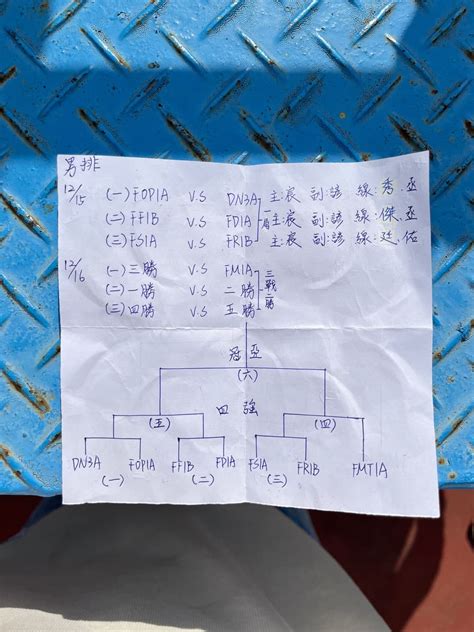 男排
12/15 (一) FOPIA V.S DN3A 主:宸 副:諺 線:秀.亞
(二) FFIB V.S FDIA 一局 主:宸 副:諺 線:傑.亞
(三) FSIA V.S FRIB 主:宸 副:諺 線:廷.佑
12/16 (一) 三勝 V.S FMIA 三戰二勝
(二) 一勝 V.S 二勝
(三) 四勝 V.S 五勝
冠亞
(六)
四強
(五) (四)
DN3A FOPIA FFIB FDIA FSIA FRIB FMTIA
(一) (二) (三)